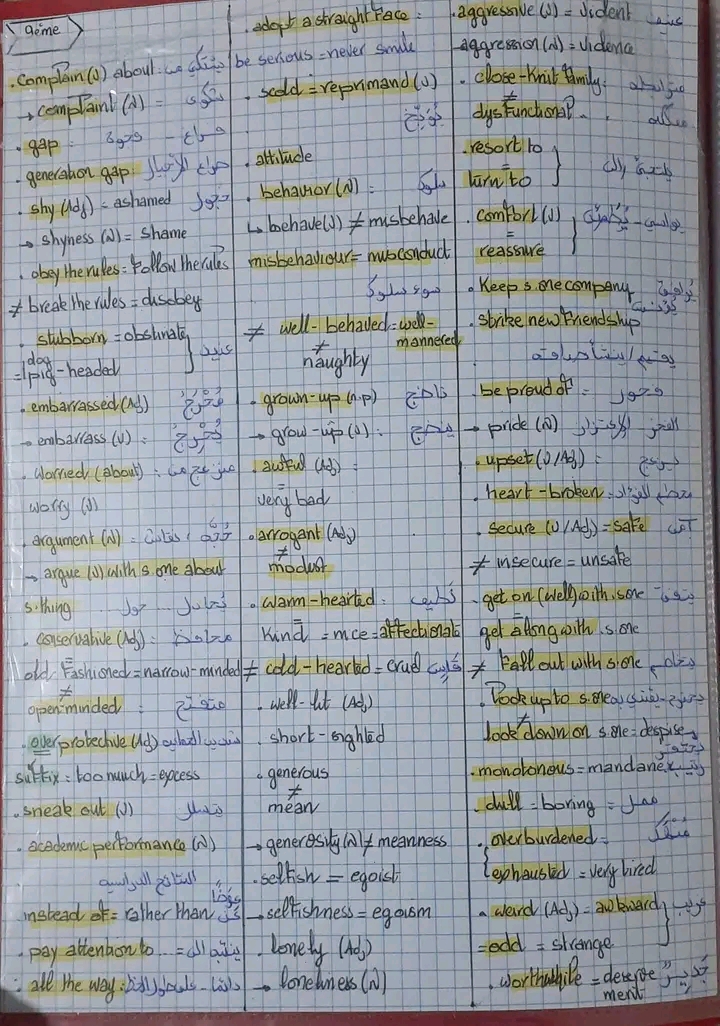 9ème
. complain (v) about : يشتكي من
→ complaint (N) = شكوى
. gap : فراغ - فجوة
. generation gap : صراع الأجيال
. shy (Adj) = ashamed خجول
→ shyness (N) = shame
. obey the rules = Follow the rules
≠ break the rules = disobey
. stubborn = obstinate
dog
= pig-headed عنيد
. embarrassed (Adj) مُحْرَجٌ
→ embarrass (v) : يُحْرِجُ
. worried (about) : منزعج من
worry (v)
. argument (N) = حُجّة ، نقاش
→ argue (v) with s.one about
s.thing يُجادل ... حول ...
. conservative (Adj) = محافظ
old Fashioned = narrow-minded
≠
open-minded : متفتح
. overprotective (Adj) شديد الحماية
suffix = too much = excess
. sneak out (v) يتسلل
. academic performance (N)
النتائج الدراسية
instead of = rather than عِوَضًا عن
. pay attention to ... = ينتبه الى
. all the way : دائما - على طول الخط
. adopt a straight Face :
be serious = never smile
. scold = reprimand (v)
≠ يُوَبّخ
. attitude
=
. behavior (N) : سلوك
↳ behave (v) ≠ misbehave
misbehaviour = misconduct
سوء سلوك
≠ well-behaved = well-mannered
≠
naughty
. grown-up (n.p) ناضج
→ grow-up (v) : ينضج
. awful (Adj) =
very bad
. arrogant (Adj)
≠
modest
. warm-hearted : لطيف
=
Kind = nice = affectionate
≠ cold-hearted = cruel قاسٍ
. well-lit (Adj)
. short-sighted
. generous
≠
mean
→ generosity (N) ≠ meanness
. selfish = egoist
→ selfishness = egoism
. lonely (Adj)
→ loneliness (N)
. aggressive (J) = vident عنيف
aggression (N) = vidence
. close-Knit family : مترابطة
≠
dysfunctional .. مفككة
. resort to
=
turn to يلتجئ إلى
. comfort (v)
=
reassure يواسي - يُطَمْئِن
. Keep s.one company يُرافق
. strike new Friendship
يقيم / ينشأ صداقة
. be proud of = فخور
→ pride (N) الفخر - الإعتزاز
. upset (v/Adj) = منزعج
. heart-broken : محطم الفؤاد
. secure (v/Adj) = safe آمن
≠ insecure = unsafe
. get on (well) with s.one
=
get along with s.one
≠ Fall out with s.one يتخاصم
. Look up to s.one
≠
look down on s.one = despise يحتقر
. monotonous = mandane رتيب
. dull = boring = ممل
. overburdened = مُثقل
exhausted = very tired
. weird (Adj) = awkward
= odd = strange غريب
. worthwhile = deserve جُدير
ment